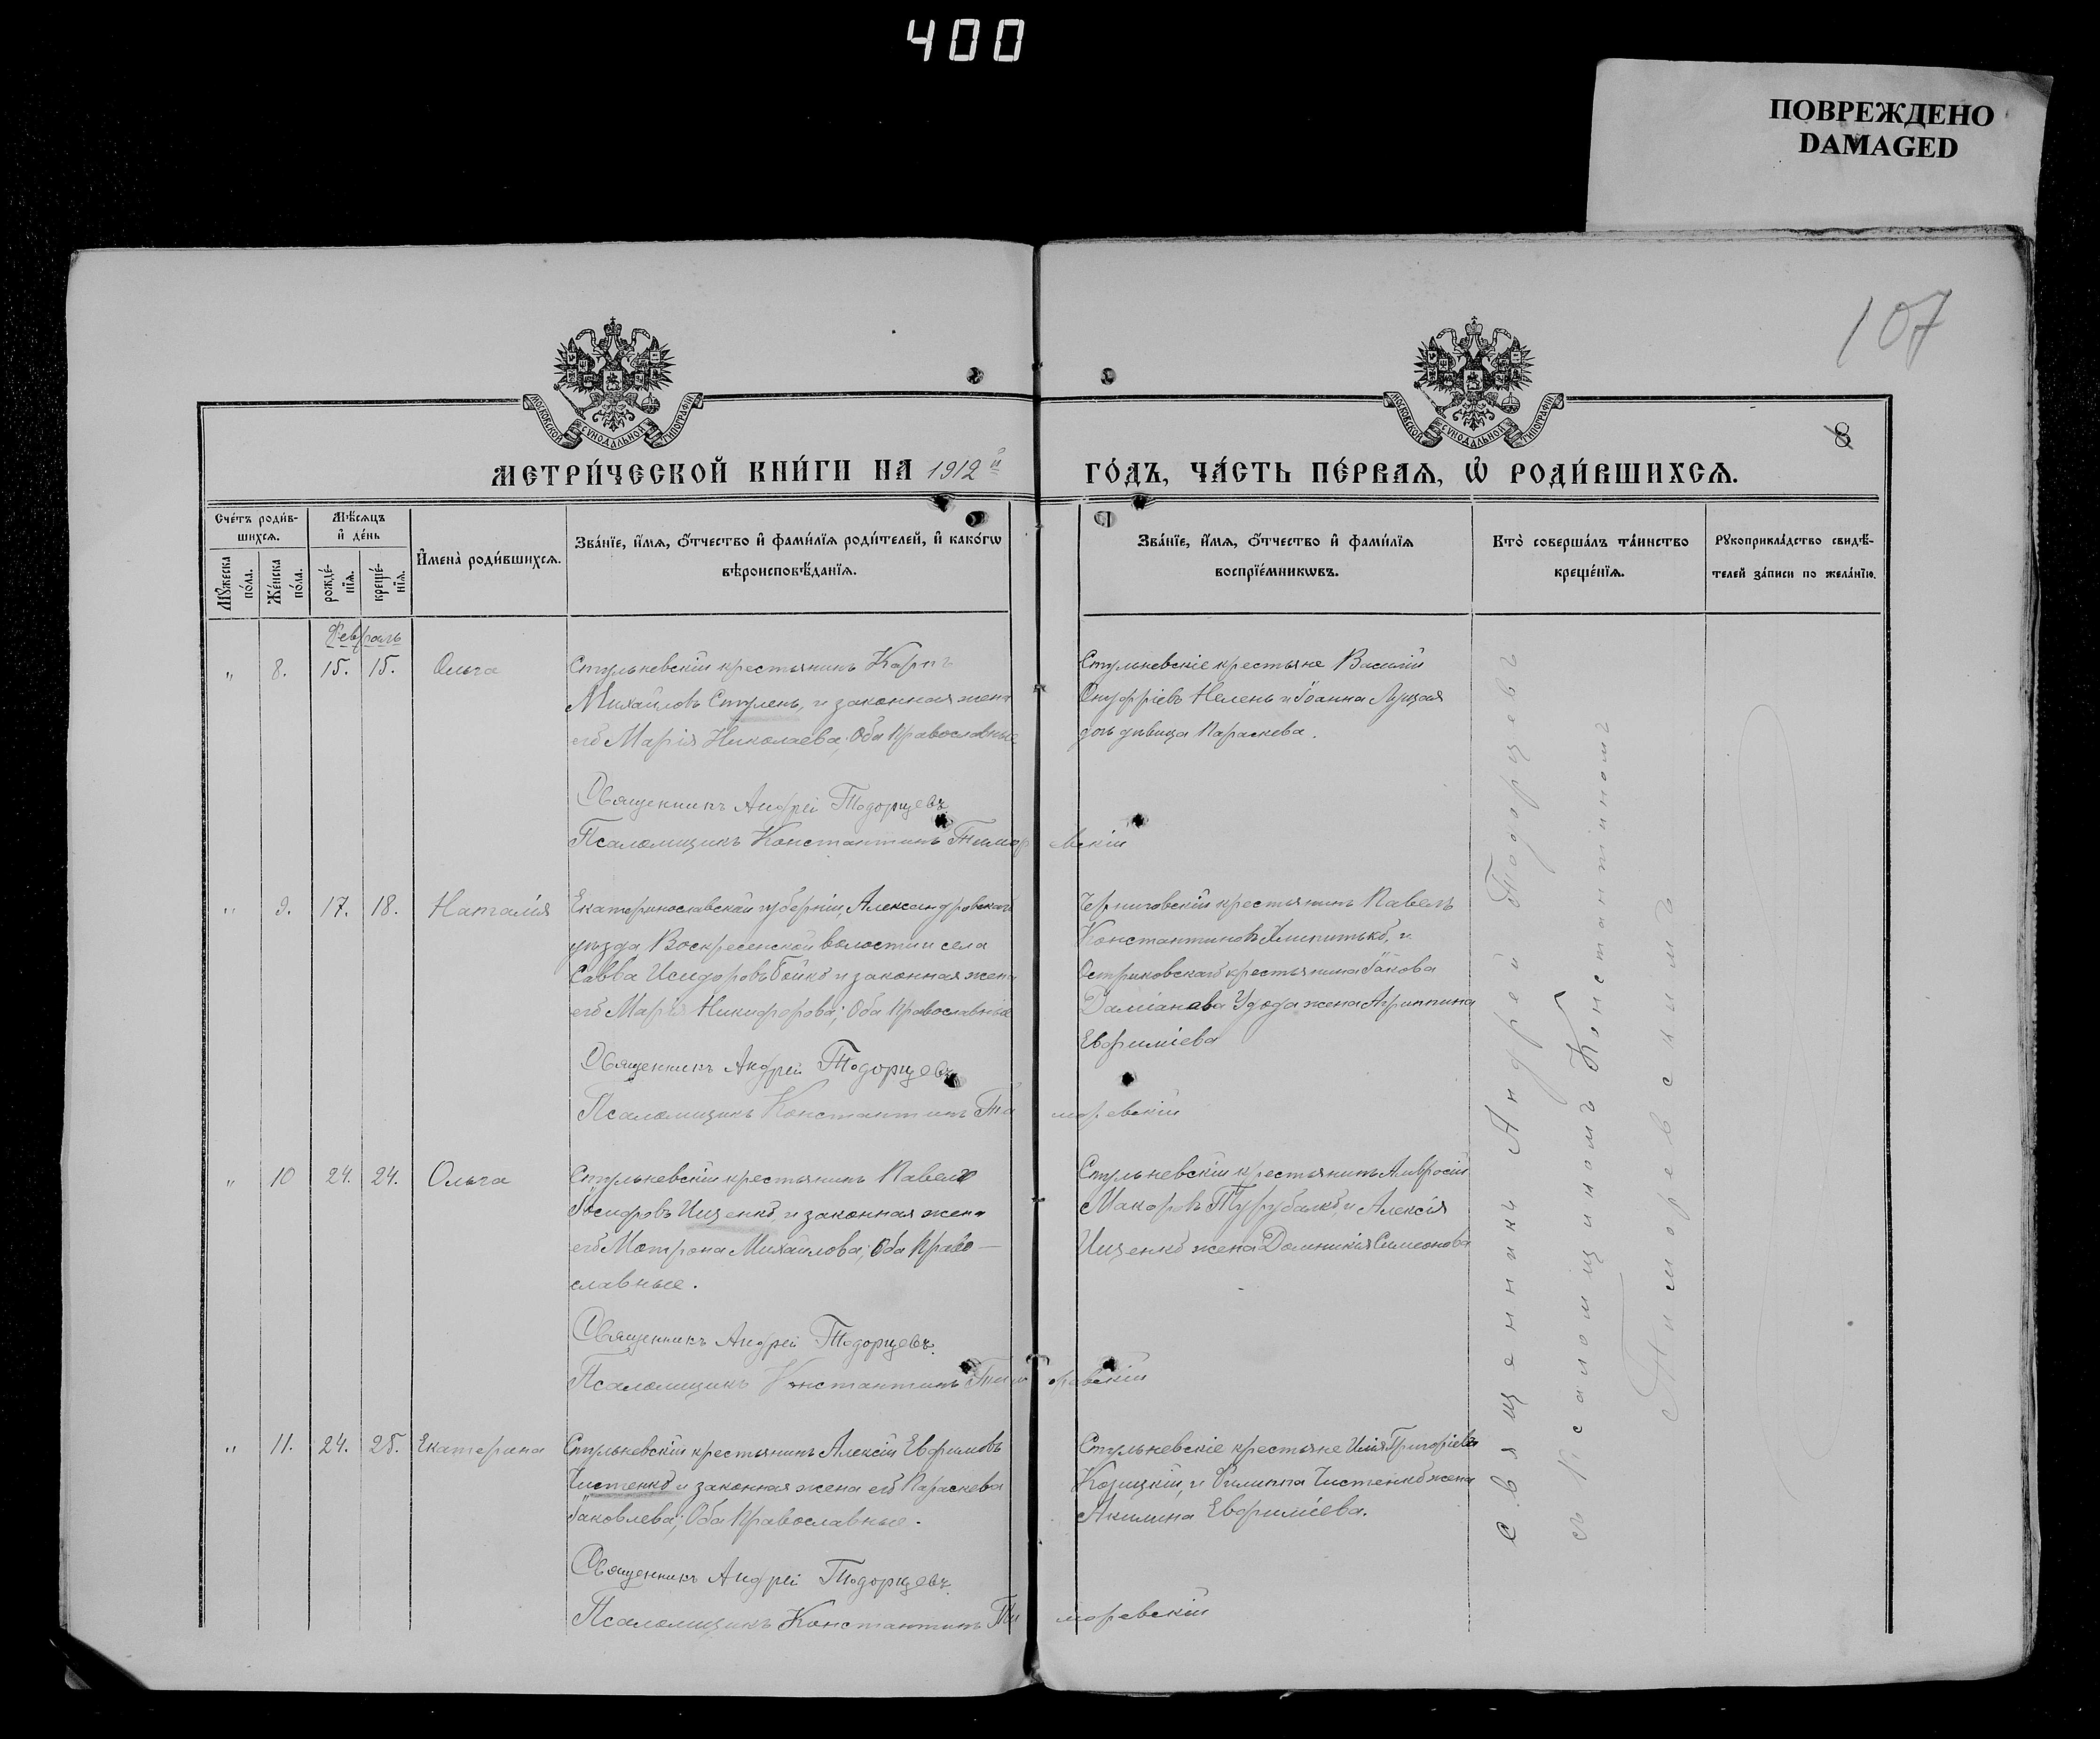 400
ПОВРЕЖДЕНО
DAMAGED
107
МОСКОВСКОЙ СѴНОДАЛЬНОЙ ТИПОГРАФІИ
МОСКОВСКОЙ СѴНОДАЛЬНОЙ ТИПОГРАФІИ
8
МЕТРИ́ЧЕСКОЙ КНИ́ГИ НА 1912й
ГО́ДЪ, ЧА́СТЬ ПЕ́РВАЯ, Ѡ РОДИ́ВШИХСЯ.
Сче́тъ роди́вшихся.
Мꙋ́жеска по́ла.
Же́нска по́ла.
Мѣ́сяцъ и҆ де́нь
рожде́нїя.
креще́нїя.
И҆мена̀ роди́вшихся.
Зва́нїе, и҆́мя, ѻ҆́тчество и҆ фами́лїя роди́телей, и҆ како́гѡ
вѣроисповѣ́данїя.
Зва́нїе, и҆́мя, ѻ҆́тчество и҆ фами́лїя
воспрїе́мникѡвъ.
Кто̀ соверша́лъ та́инство
креще́нїя.
Рꙋкоприкла́дство свидѣ́-
телей за́писи по жела́нїю.
Февраль
„ 8. 15. 15. Ольга
Стульневскій крестьянинъ Карпъ
Михайловъ Стулень, и законная жена
его Марія Николаева; Оба Православные
Священникъ Андрей Тодорцевъ
Псаломщикъ Константинъ Тиморевскій
Стульневскіе крестьяне Василій
Онуфріевъ Нелень и Іоанна Луцая
дочь дѣвица Параскева.
„ 9. 17. 18. Наталія
Екатеринославской губерніи, Александровскаго
уѣзда Воскресенской волости и села
Савва Исидоровъ Бойко и законная жена
его Марія Никифорова; Оба Православные
Священникъ Андрей Тодорцевъ
Псаломщикъ Константинъ Тиморевскій
Черниговскій крестьянинъ Павелъ
Константиновъ, и
Остриковскаго крестьянина Іакова
Даміанова Удода жена Агриппина
Евфиміева
„ 10 24. 24. Ольга
Стульневскій крестьянинъ Павелъ
Іосифовъ Ищенко, и законная жена
его Мотрона Михайлова; Оба Право-
славные.
Священникъ Андрей Тодорцевъ.
Псаломщикъ Константинъ Тиморевскій
Стульневскій крестьянинъ Амвросій
Макаровъ Турубалко, и Алексія
Ищенко жена Домникія Симеонова
„ 11. 24. 25. Екатерина
Стульневскій крестьянинъ Алексій Евфимовъ
Чистенко и законная жена его Параскева
Іаковлева; Оба Православные.
Священникъ Андрей Тодорцевъ
Псаломщикъ Константинъ Тиморевскій
Стульневскіе крестьяне Илія Григоріевъ
Корицкій, и Филиппа Чистенко жена
Акилина Евфиміева.
Священникъ Андрей Тодорцевъ
съ Псаломщикомъ Константиномъ
Тиморевскимъ